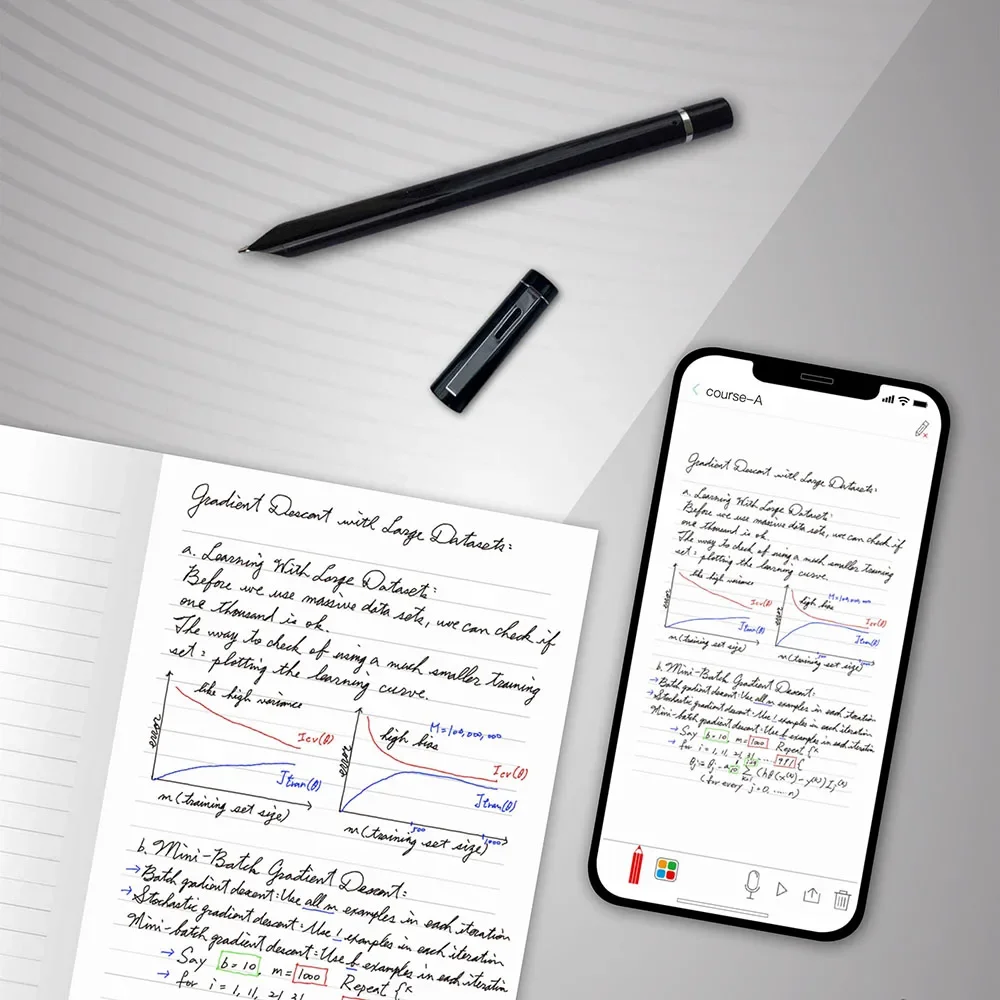 Gradient Descent with Large Datasets:
a. Learning With Large Datasets:
Before we use massive data sets, we can check if
one thousand is ok.
The way to check of using a much smaller training
set: plotting the learning curve.
like high variance
error
Jcv(θ)
Jtran(θ)
m (training set size)
high bias
M=100,000,000
error
Jcv(θ)
Jtran(θ)
500
1,000
m (training set size)
b. Mini-Batch Gradient Descent:
→ Batch gradient descent: Use all m examples in each iteration
→ Stochastic gradient descent: Use 1 examples in each iteration
Mini-batch gradient descent: Use b examples in each iteration
→ Say b=10, m=1000 Repeat {
→ for i = 1, 11, 21, 31,
course-A
Gradient Descent with Large Datasets:
a. Learning With Large Datasets:
Before we use massive data sets, we can check if
one thousand is ok.
The way to check of using a much smaller training
set: plotting the learning curve.
like high variance
error
Jcv(θ)
Jtran(θ)
m (training set size)
high bias
M=100,000,000
error
Jcv(θ)
Jtran(θ)
500
1,000
m (training set size)
b. Mini-Batch Gradient Descent:
→ Batch gradient descent: Use all m examples in each iteration
→ Stochastic gradient descent: Use 1 examples in each iteration
Mini-batch gradient descent: Use b examples in each iteration
→ Say b=10 m=1000 Repeat {
→ for i = 1, 11, 21, 31, ..... 991 {
(for every j=0, ..... n)